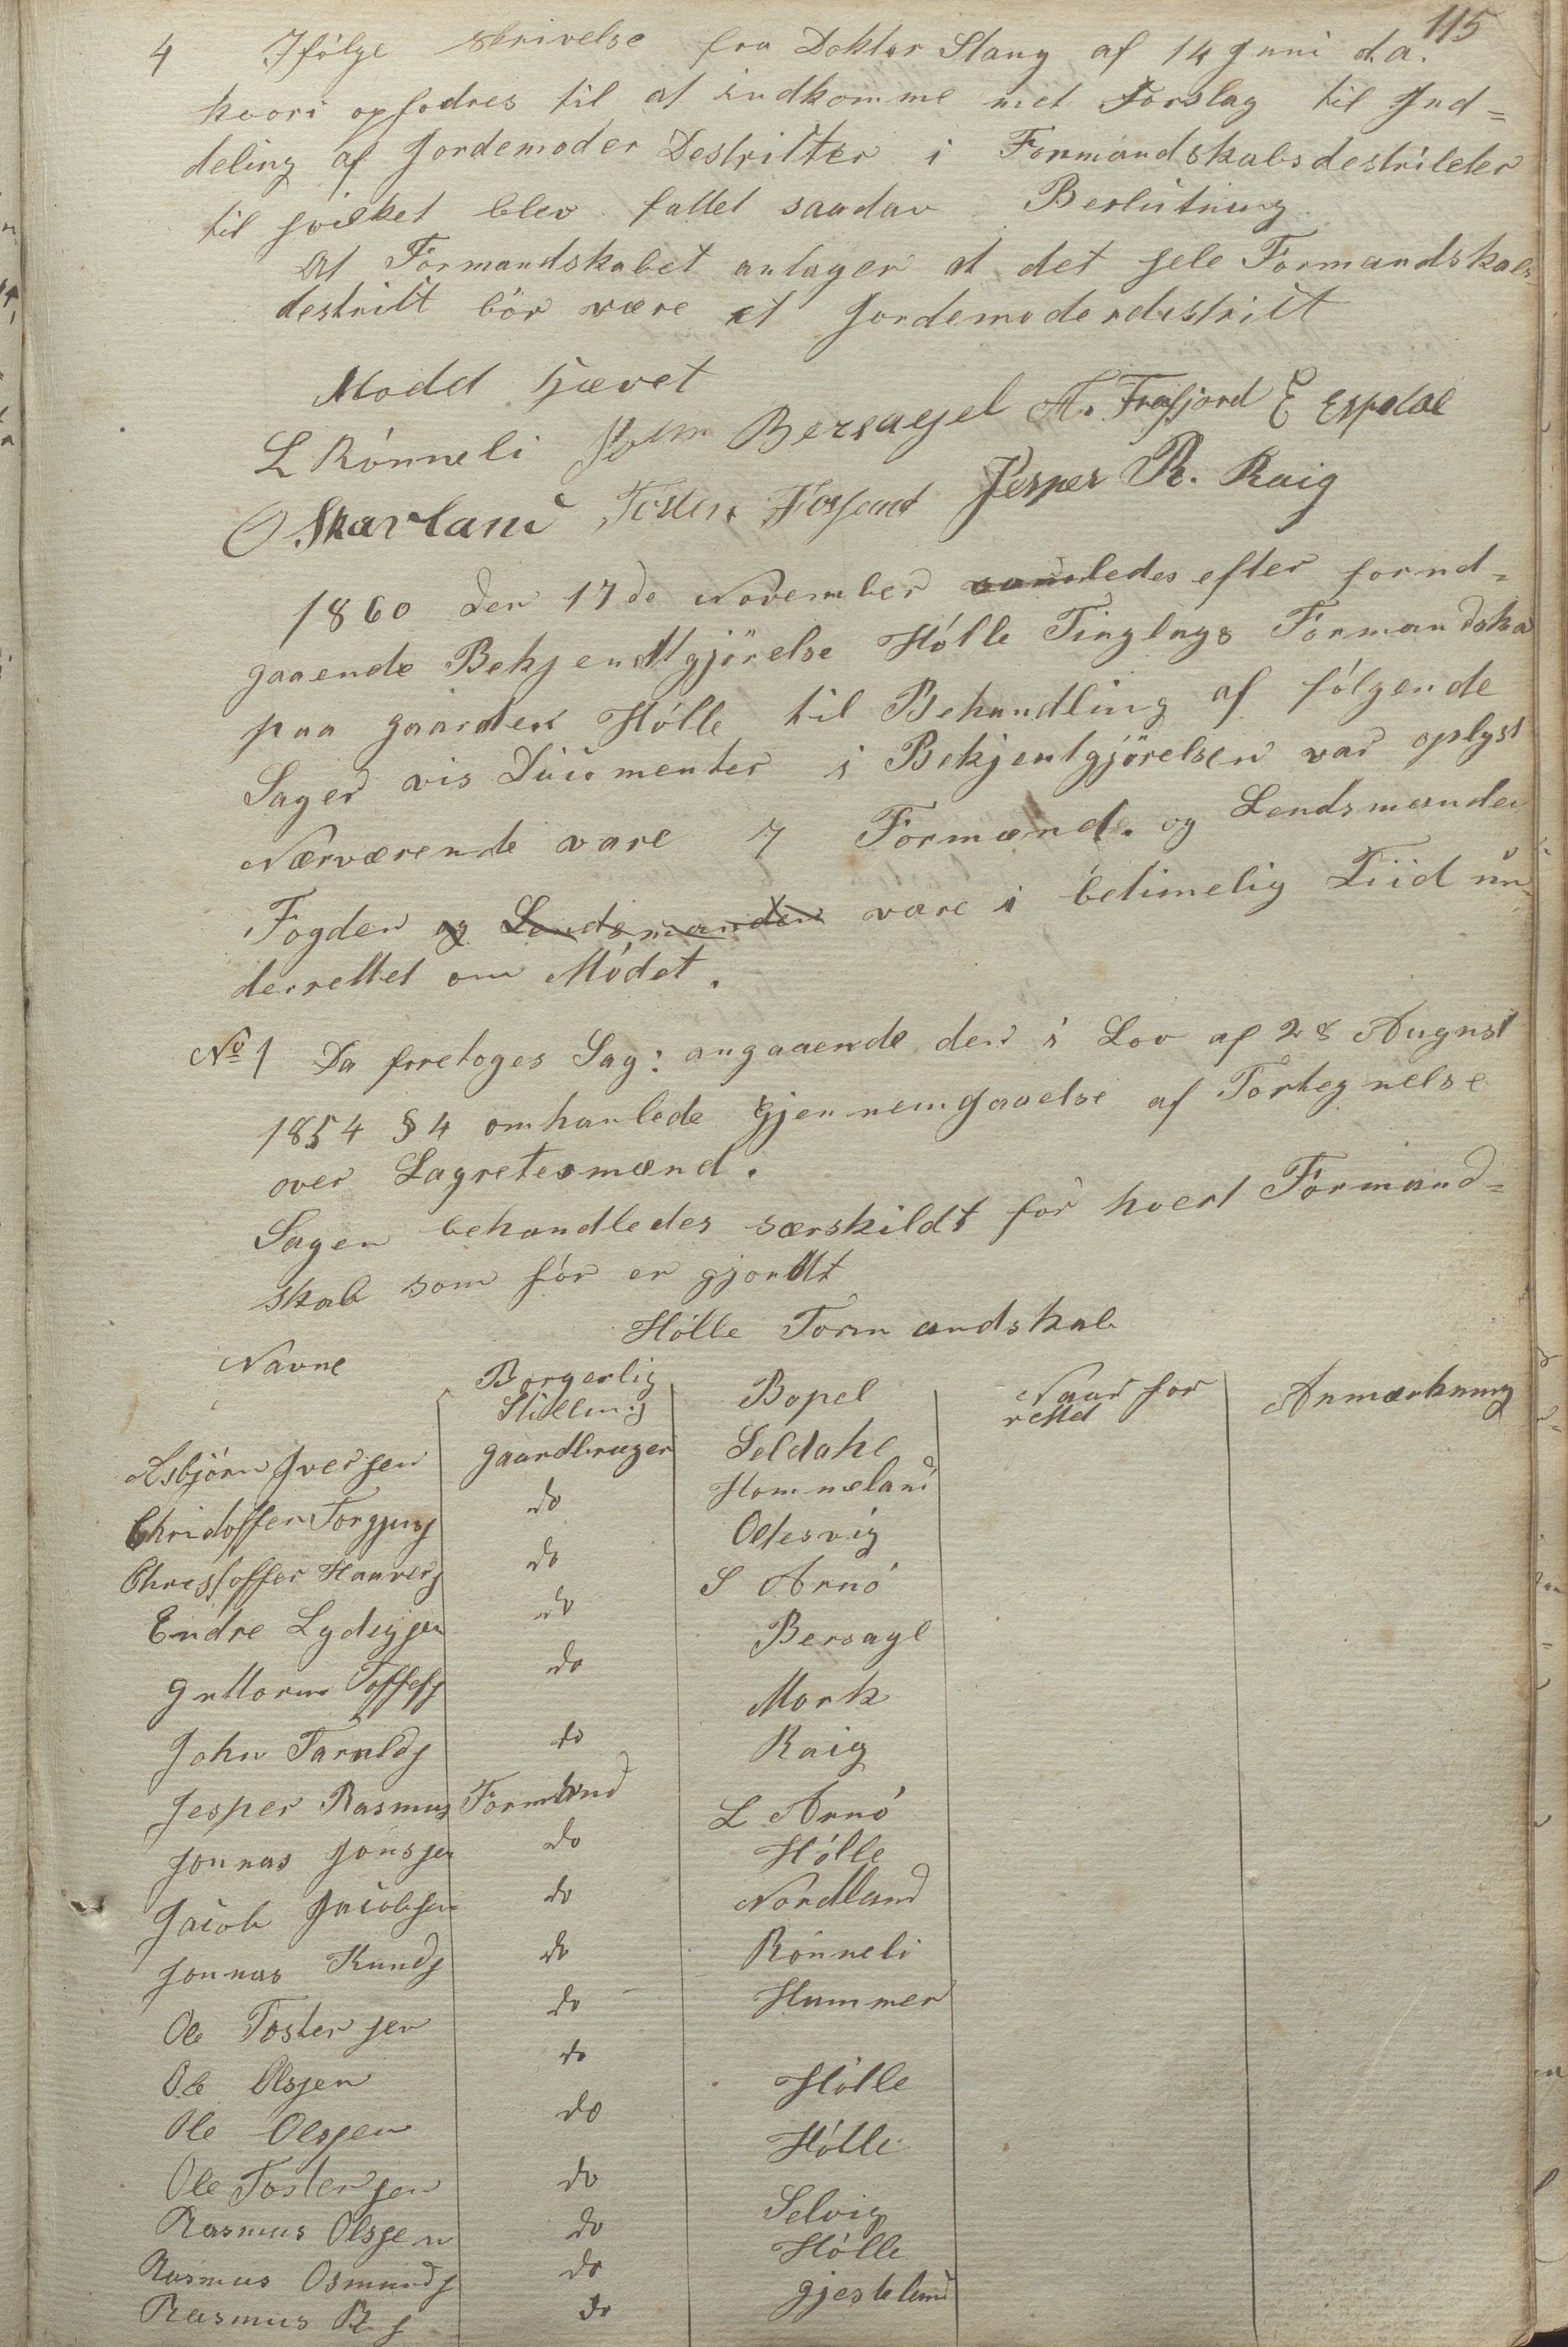 115
4 Ifölge Skrivelse fra Doktor Stang af 14 Juni d.a.
hvori opfodres til at indkomme med Forslag til Ind=
deling af Jordemoder Destrikter i Formandskabsdestrikter
til hvilket blev fattet saadan Beslutning
At Formandskabet antager at det hele Formandskabs
destrikt bör være et Jordemoderdistrikt
Mödet Hævet
L Rönneli John Bersagel A. Frafjord E Espedal
O Skavland Tosten Fosand Jesper R. Raig
1860 den 17de November samledes efter forud=
gaaende Bekjendtgjörelse Hölle Tinglags Formandska
paa gaarden Hölle til Behandling af fölgende
Sager vis Ducomenter i Bekjentgjörelsen var oplyst
Nærværende vare 7 Formænd. og Lendsmanden
Fogden og Lendsmanden vare i betimelig Tiid un=
derrettet om Mödet.
No 1 Da foretoges Sag: angaaende den i Lov af 28 August
1854 § 4 omhanlede Gjennemgaaelse af Fortegnelse
over Lagretesmænd.
Sagen behandledes særskildt for hvert Formand=
skab som för er gjordt
Hölle Formandskab
Navne Borgerlig Stilling Bopel Naar for rettet Anmærkning
Asbjörn Iversen gaardbruger Seldahl
Chridoffer Torgjusj do Hommeland
Christoffer Haaversj do Oltesvig
Endre Lydigsen do S Arnö
Guttorm do Bersagl
John Taraldsj do Mork
Jesper Rasmusj Formand Raig
Jonnas Jonsen do L Arnö
Jacob Jacobsen do Hölle
Jonnas Knudsj do Nordland
Ole Tostensen do Rönneli
Ole Olsen do Hammer
Ole Olsen do Hölle
Ole Tostensen do Hölle
Rasmus Olsen do Selvig
Rasmus Osmundsj do Hölle
Rasmus R. j do Gjesteland